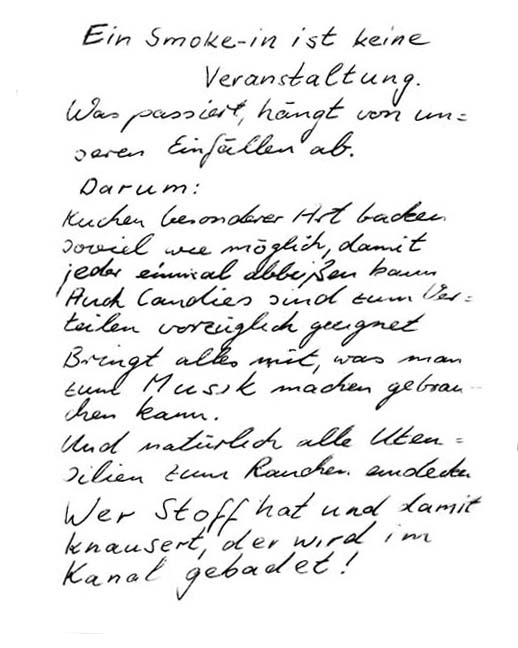 Ein Smoke-in ist keine
Veranstaltung.
Was passiert, hängt von un=
seren Einfällen ab.
Darum:
Kuchen besonderer Art backen
soviel wie möglich, damit
jeder einmal abbeißen kann
Auch Candies sind zum Ver=
teilen vorzüglich geeignet
Bringt alles mit, was man
zum Musik machen gebrau-
chen kann.
Und natürlich alle Uten=
silien zum Rauchen
Wer Stoff hat und damit
knausert, der wird im
Kanal gebadet!